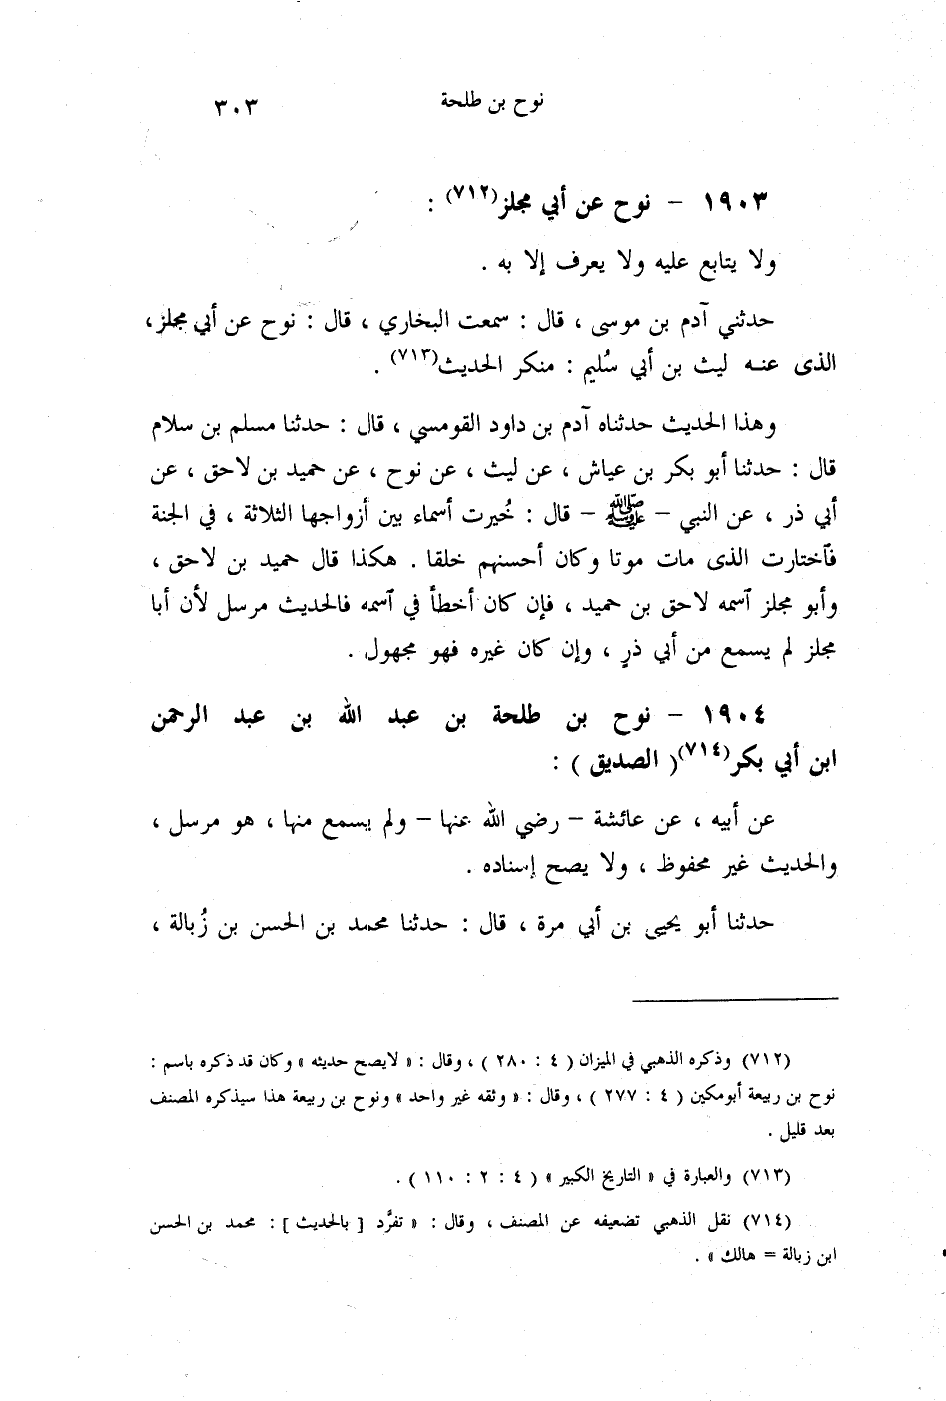 نوح بن طلحة ٣٠٣
١٩٠٣ – نوح عن أبي مجلز(٧١٢) :
ولا يتابع عليه ولا يعرف إلا به .
حدثني آدم بن موسى ، قال : سمعت البخاري ، قال : نوح عن أبي مجلز،
الذى عنـه ليث بن أبي سُليم : منكر الحديث(٧١٣) .
وهذا الحديث حدثناه آدم بن داود القومسي ، قال : حدثنا مسلم بن سلام
قال : حدثنا أبو بكر بن عياش ، عن ليث ، عن نوح ، عن حميد بن لاحق ، عن
أبي ذر ، عن النبي – ﷺ – قال : خُيرت أسماء بين أزواجها الثلاثة ، في الجنة
فٱختارت الذى مات موتا وكان أحسنهم خلقا . هكذا قال حميد بن لاحق ،
وأبو مجلز ٱسمه لاحق بن حميد ، فإن كان أخطأ في ٱسمه فالحديث مرسل لأن أبا
مجلز لم يسمع من أبي ذرٍ ، وإن كان غيره فهو مجهول .
١٩٠٤ – نوح بن طلحة بن عبد الله بن عبد الرحمن
ابن أبي بكر(٧١٤)( الصديق ) :
عن أبيه ، عن عائشة – رضي الله عنها – ولم يسمع منها ، هو مرسل ،
والحديث غير محفوظ ، ولا يصح إسناده .
حدثنا أبو يحيى بن أبي مرة ، قال : حدثنا محمد بن الحسن بن زُبالة ،
(٧١٢) وذكره الذهبي في الميزان ( ٤ : ٢٨٠ ) ، وقال : « لايصح حديثه » وكان قد ذكره باسم :
نوح بن ربيعة أبومكين ( ٤ : ٢٧٧ ) ، وقال : « وثقه غير واحد » ونوح بن ربيعة هذا سيذكره المصنف
بعد قليل .
(٧١٣) والعبارة في « التاريخ الكبير » ( ٤ : ٢ : ١١٠ ) .
(٧١٤) نقل الذهبي تضعيفه عن المصنف ، وقال : « تفرَّد [ بالحديث ] : محمد بن الحسن
ابن زبالة = هالك » .